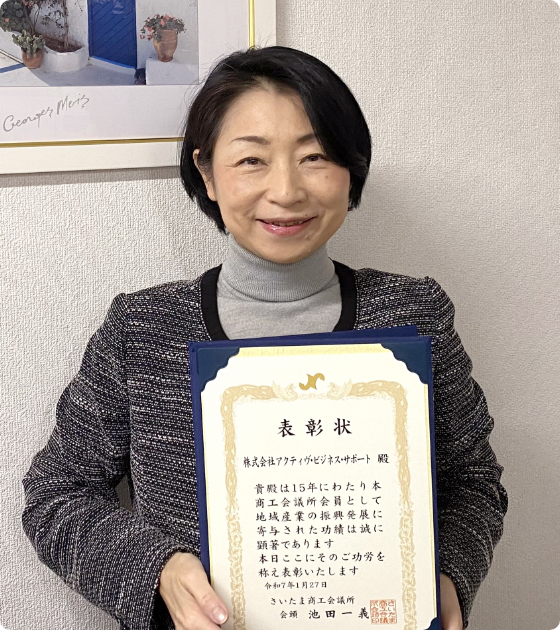 Georges Meis
表彰状
株式会社アクティヴ・ビジネス・サポート 殿
貴殿は15年にわたり本
商工会議所会員として
地域産業の振興発展に
寄与された功績は誠に
顕著であります
本日ここにそのご功労を
称え表彰いたします
令和7年1月27日
さいたま商工会議所
会頭 池田一義